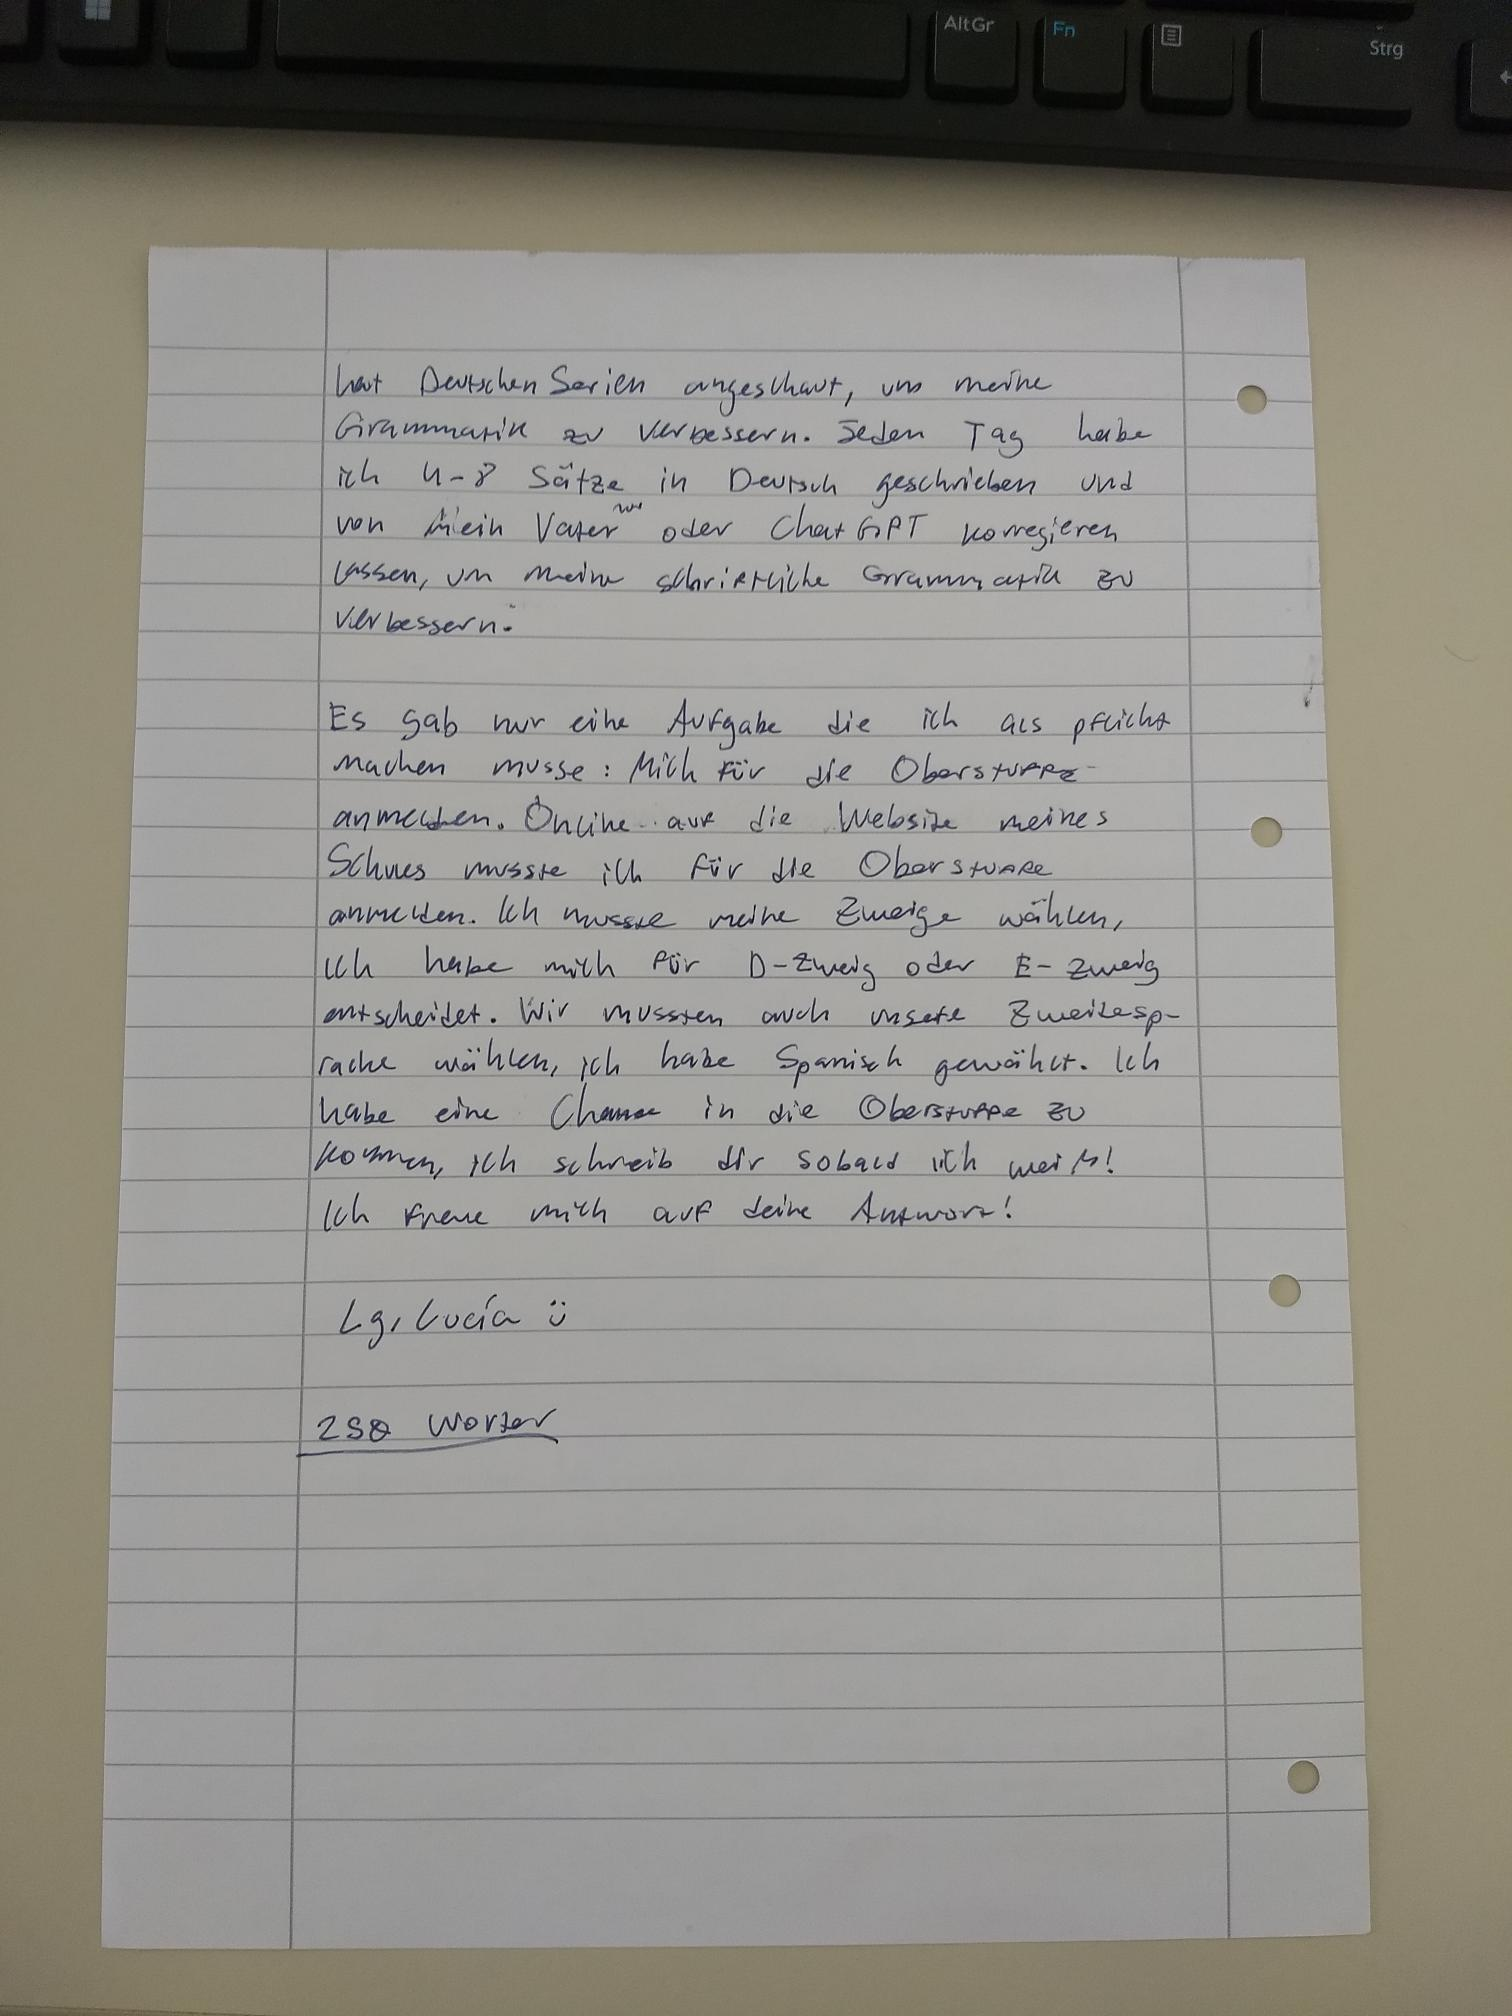 AltGr Fn Strg
hat Deutschen Serien angeschaut, um meine
Grammatik zu verbessern. Jeden Tag habe
ich 4-8 Sätze in Deutsch geschrieben und
von mein Vater oder Chat GPT korregieren
lassen, um meine schriftliche Grammatik zu
verbessern.
Es gab nur eine Aufgabe die ich als pflicht
machen musse: Mich für die Oberstuffe
anmelden. Online auf die Website meines
Schules musste ich für die Oberstuffe
anmelden. Ich musste meine Zweige wählen,
ich habe mich für D-Zweig oder E-Zweig
entscheidet. Wir mussten auch unsere Zweitesp-
rache wählen, ich habe Spanisch gewählt. Ich
habe eine Chance in die Oberstuffe zu
kommen, ich schreib dir sobald ich weiß!
Ich freue mich auf deine Antwort!
Lg, Lucía
250 Wörter